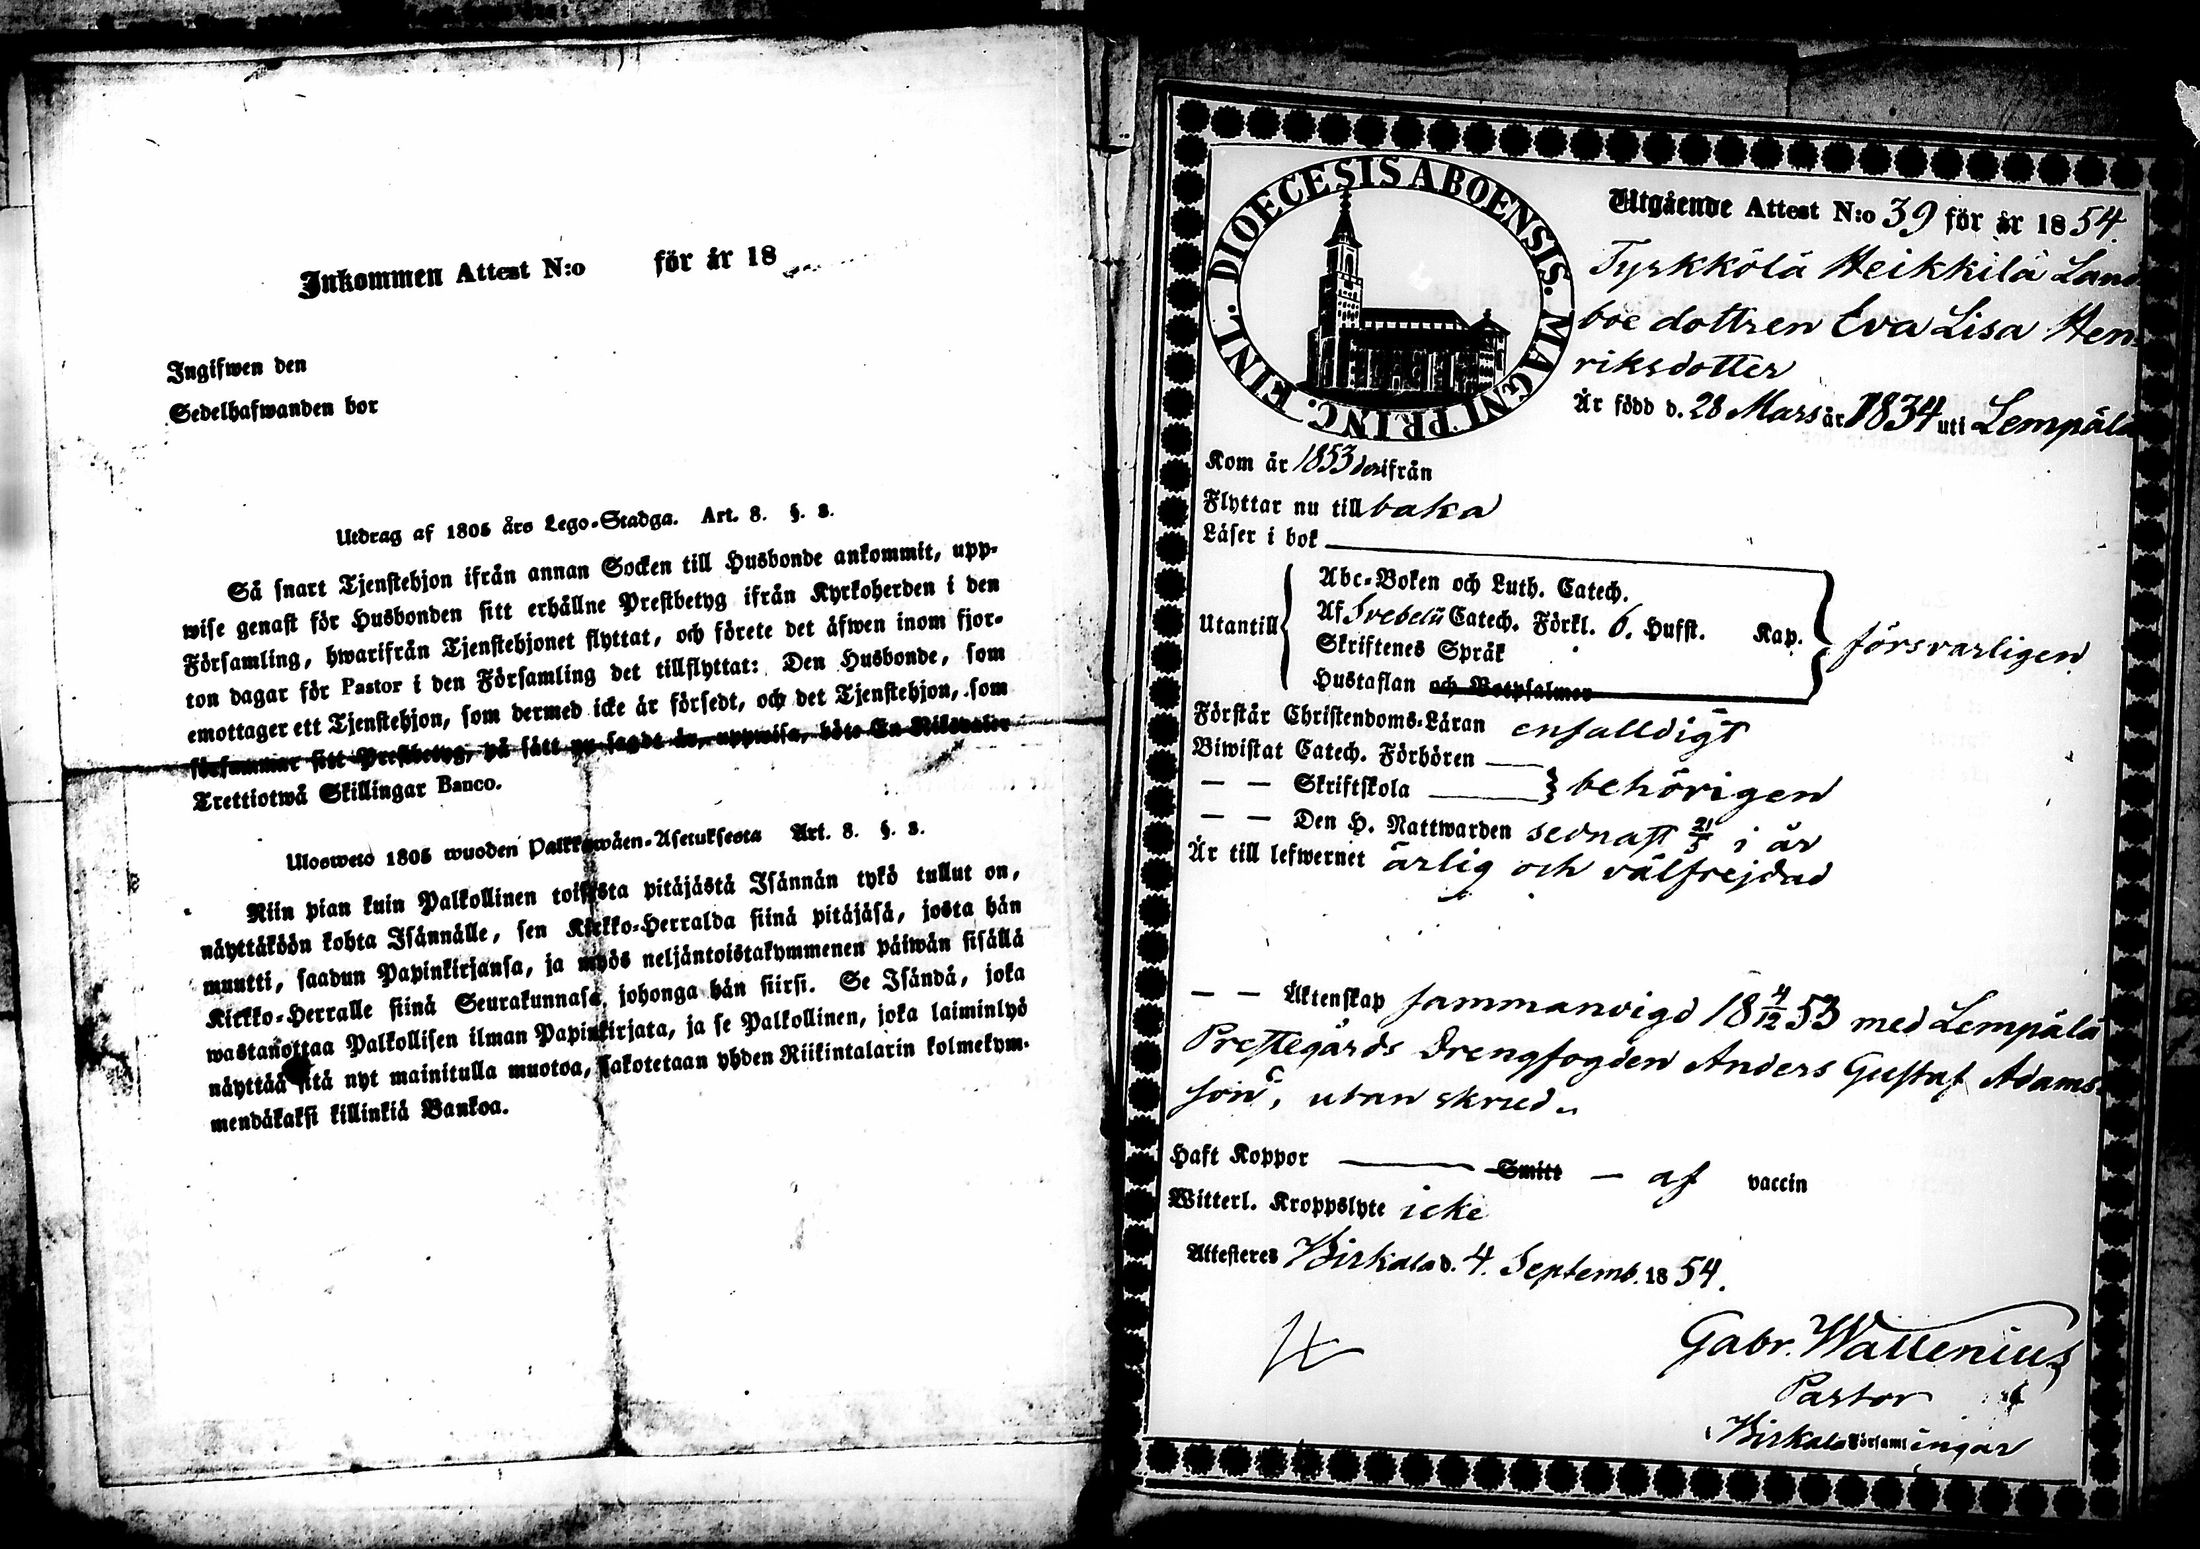 Inkommen Attest N:o för år 18
Ingifwen den
Sedelhafwanden bor
Utdrag af 1805 års Lego-Stadga. Art. 8. §. 2.
Så snart Tjenstehjon ifrån annan Socken till Husbonde ankommit, upp-
wise genast för Husbonden sitt erhållne Prestbetyg ifrån Kyrkoherden i den
Församling, hwarifrån Tjenstehjonet flyttat, och förete det äfwen inom fjor-
ton dagar för Pastor i den Församling det tillflyttat: Den Husbonde, som
emottager ett Tjenstehjon, som dermed icke är försedt, och det Tjenstehjon, som
försummar sitt Prestbetyg, på sätt nu sagdt är, uppwisa, böte En Riksdaler
Trettiotwå Skillingar Banco.
Ulosweto 1805 wuoden Palkkawäen-Asetuksesta Art. 8. §. 2.
Niin pian kuin Palkollinen toisesta pitäjästä Isännän tykö tullut on,
näyttäköön kohta Isännälle, sen Kirkko-Herralda siinä pitäjäsä, josta hän
muutti, saadun Papinkirjansa, ja myös neljäntoistakymmenen päiwän sisällä
Kirkko-Herralle siinä Seurakunnasa, johonga hän siirsi. Se Isändä, joka
wastanottaa Palkollisen ilman Papinkirjata, ja se Palkollinen, joka laiminlyö
näyttää sitä nyt mainitulla muotoa, sakotetaan yhden Riikintalarin kolmekym-
mendäkaksi killinkiä Bankoa.
DIOECESIS ABOENSIS. MAGNI PRINC. FINL.
Utgående Attest N:o 39 för år 1854.
Tyrkkölä Heikkilä Land
boe dottren Eva Lisa Hen
riksdotter
Är född d. 28 Mars år 1834 uti Lempälä
Kom år 1853 derifrån
Flyttar nu tillbaka
Läser i bok
Utantill
Abc-Boken och Luth. Catech.
Af Svebelii Catech. Förkl. 6. Hufst. Kap.
Skriftenes Språk
Hustaflan och Botpsalmer
försvarligen
Förstår Christendoms-Läran enfalldigt
Biwistat Catech. Förhören
— — Skriftskola behörigen
— — Den H. Nattwarden sednast 21/5 i år
Är till lefwernet ärlig och välfrejdad
— — Äktenskap sammanvigd 18 4/12 53 med Lempälä
Prestegårds Drengfogden Anders Gustaf Adams-
son, utan skrud
Haft Koppor — Smitt — af vaccin
Witterl. Kroppslyte icke
Attesteres Birkala d. 4. Septemb. 1854.
Gabr. Wallenius
Pastor
Birkala Församlingar